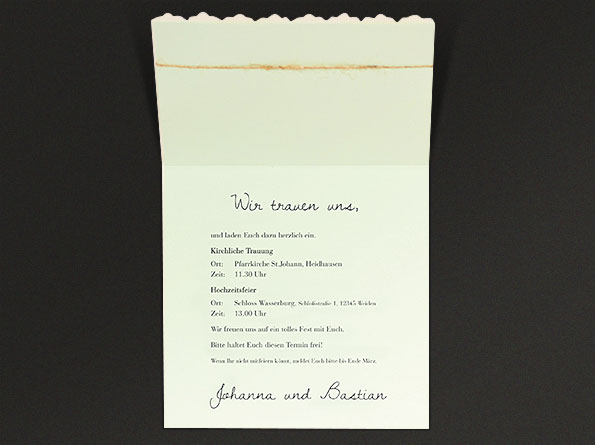 Wir trauen uns,
und laden Euch dazu herzlich ein.
Kirchliche Trauung
Ort: Pfarrkirche St.Johann, Heidhausen
Zeit: 11.30 Uhr
Hochzeitsfeier
Ort: Schloss Wasserburg, Schloßstraße 1, 12345 Weiden
Zeit: 13.00 Uhr
Wir freuen uns auf ein tolles Fest mit Euch.
Bitte haltet Euch diesen Termin frei!
Wenn Ihr nicht mitfeiern könnt, meldet Euch bitte bis Ende März.
Johanna und Bastian